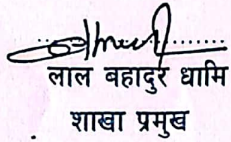 लाल बहादुर धामि
शाखा प्रमुख